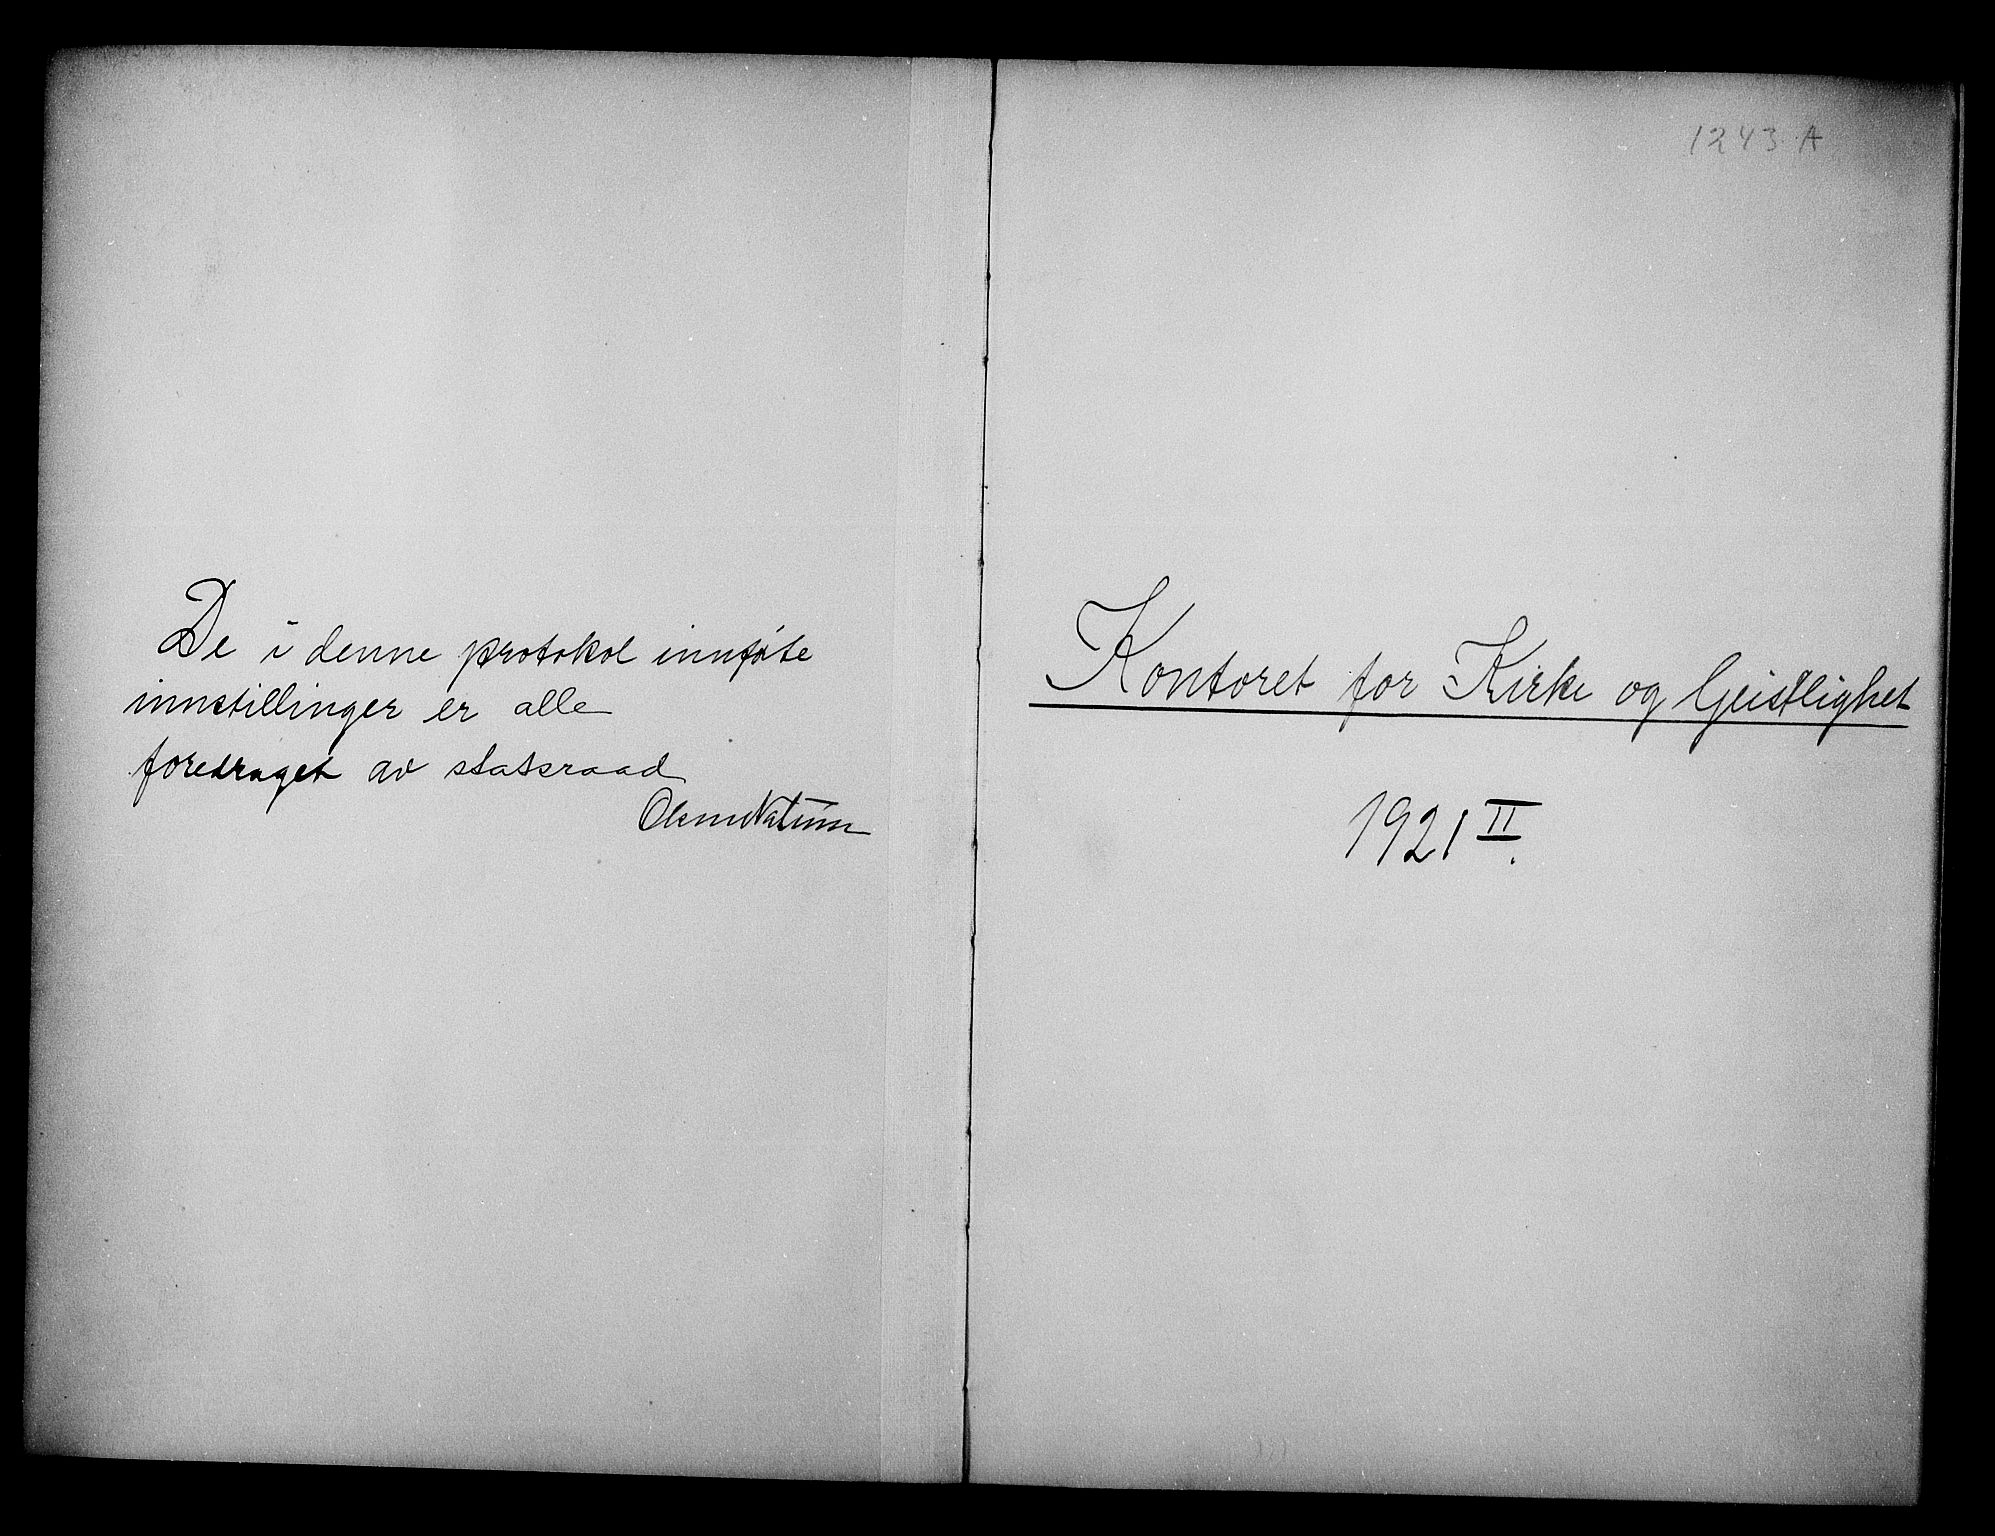 De i denne protokol innførte
innstillinger er alle
foredraget av statsraad
1243 A
Kontoret for Kirke og Geistlighet
1921 II.